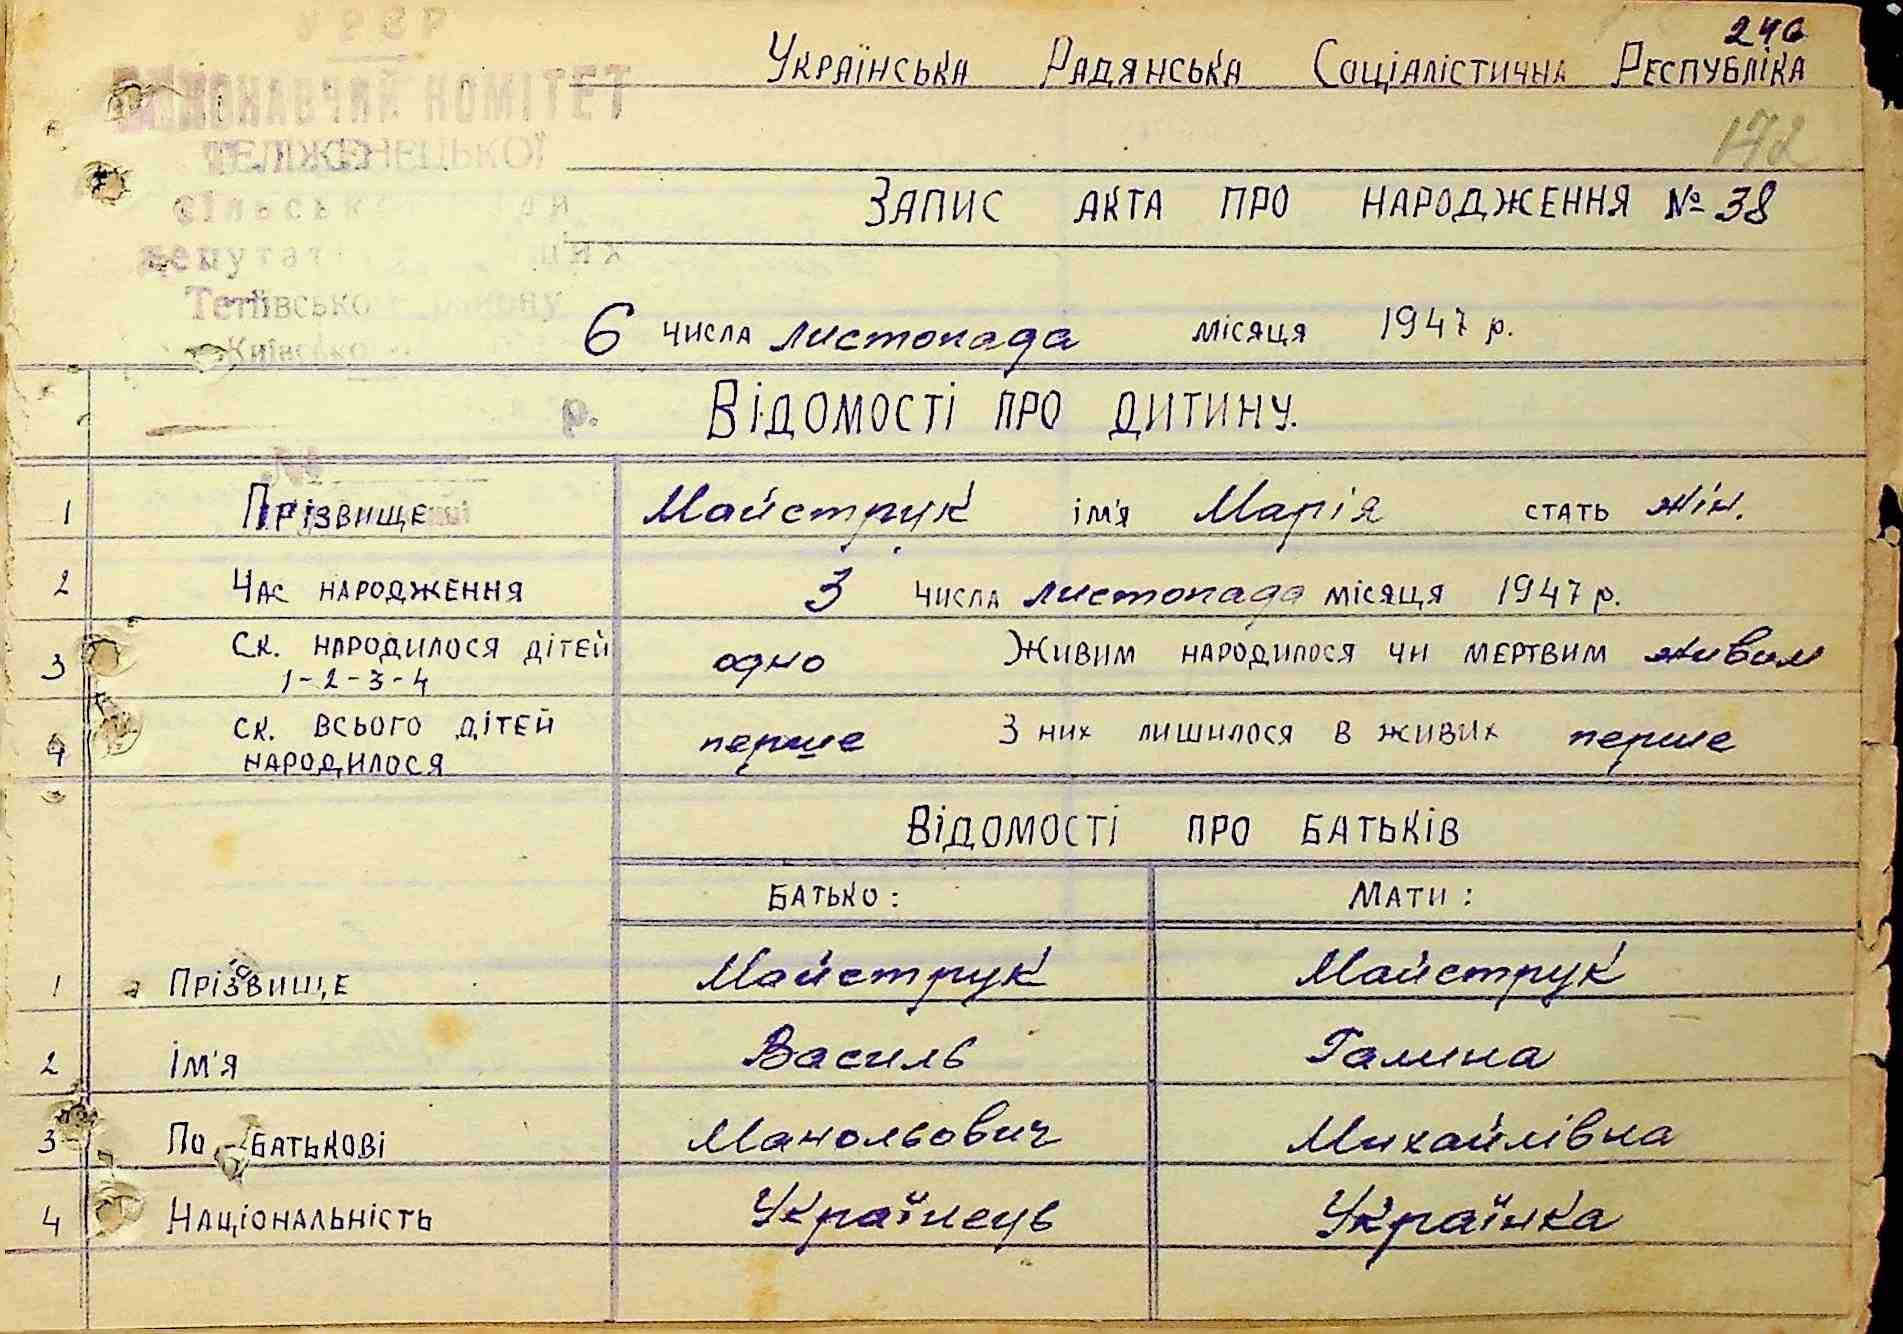 246
УРСР
Українська Радянська Соціалістична Республіка
ВИКОНАВЧИЙ КОМІТЕТ
172
ТЕЛІЖЕНЕЦЬКОЇ
Запис акта про народження № 38
сільської
депутатів
Тетіївського району
Київської
6 числа листопада місяця 1947 р.
р.
Відомості про дитину.
№
1 Прізвище Майструк ім'я Марія стать жін.
2 Час народження 3 числа листопада місяця 1947 р.
3 Ск. народилося дітей 1-2-3-4 одно Живим народилося чи мертвим живим
4 ск. всього дітей народилося перше З них лишилося в живих перше
Відомості про батьків
Батько: Мати:
1 Прізвище Майструк Майструк
2 Ім'я Василь Галина
3 По-батькові Манольович Михайлівна
4 Національність Українець Українка